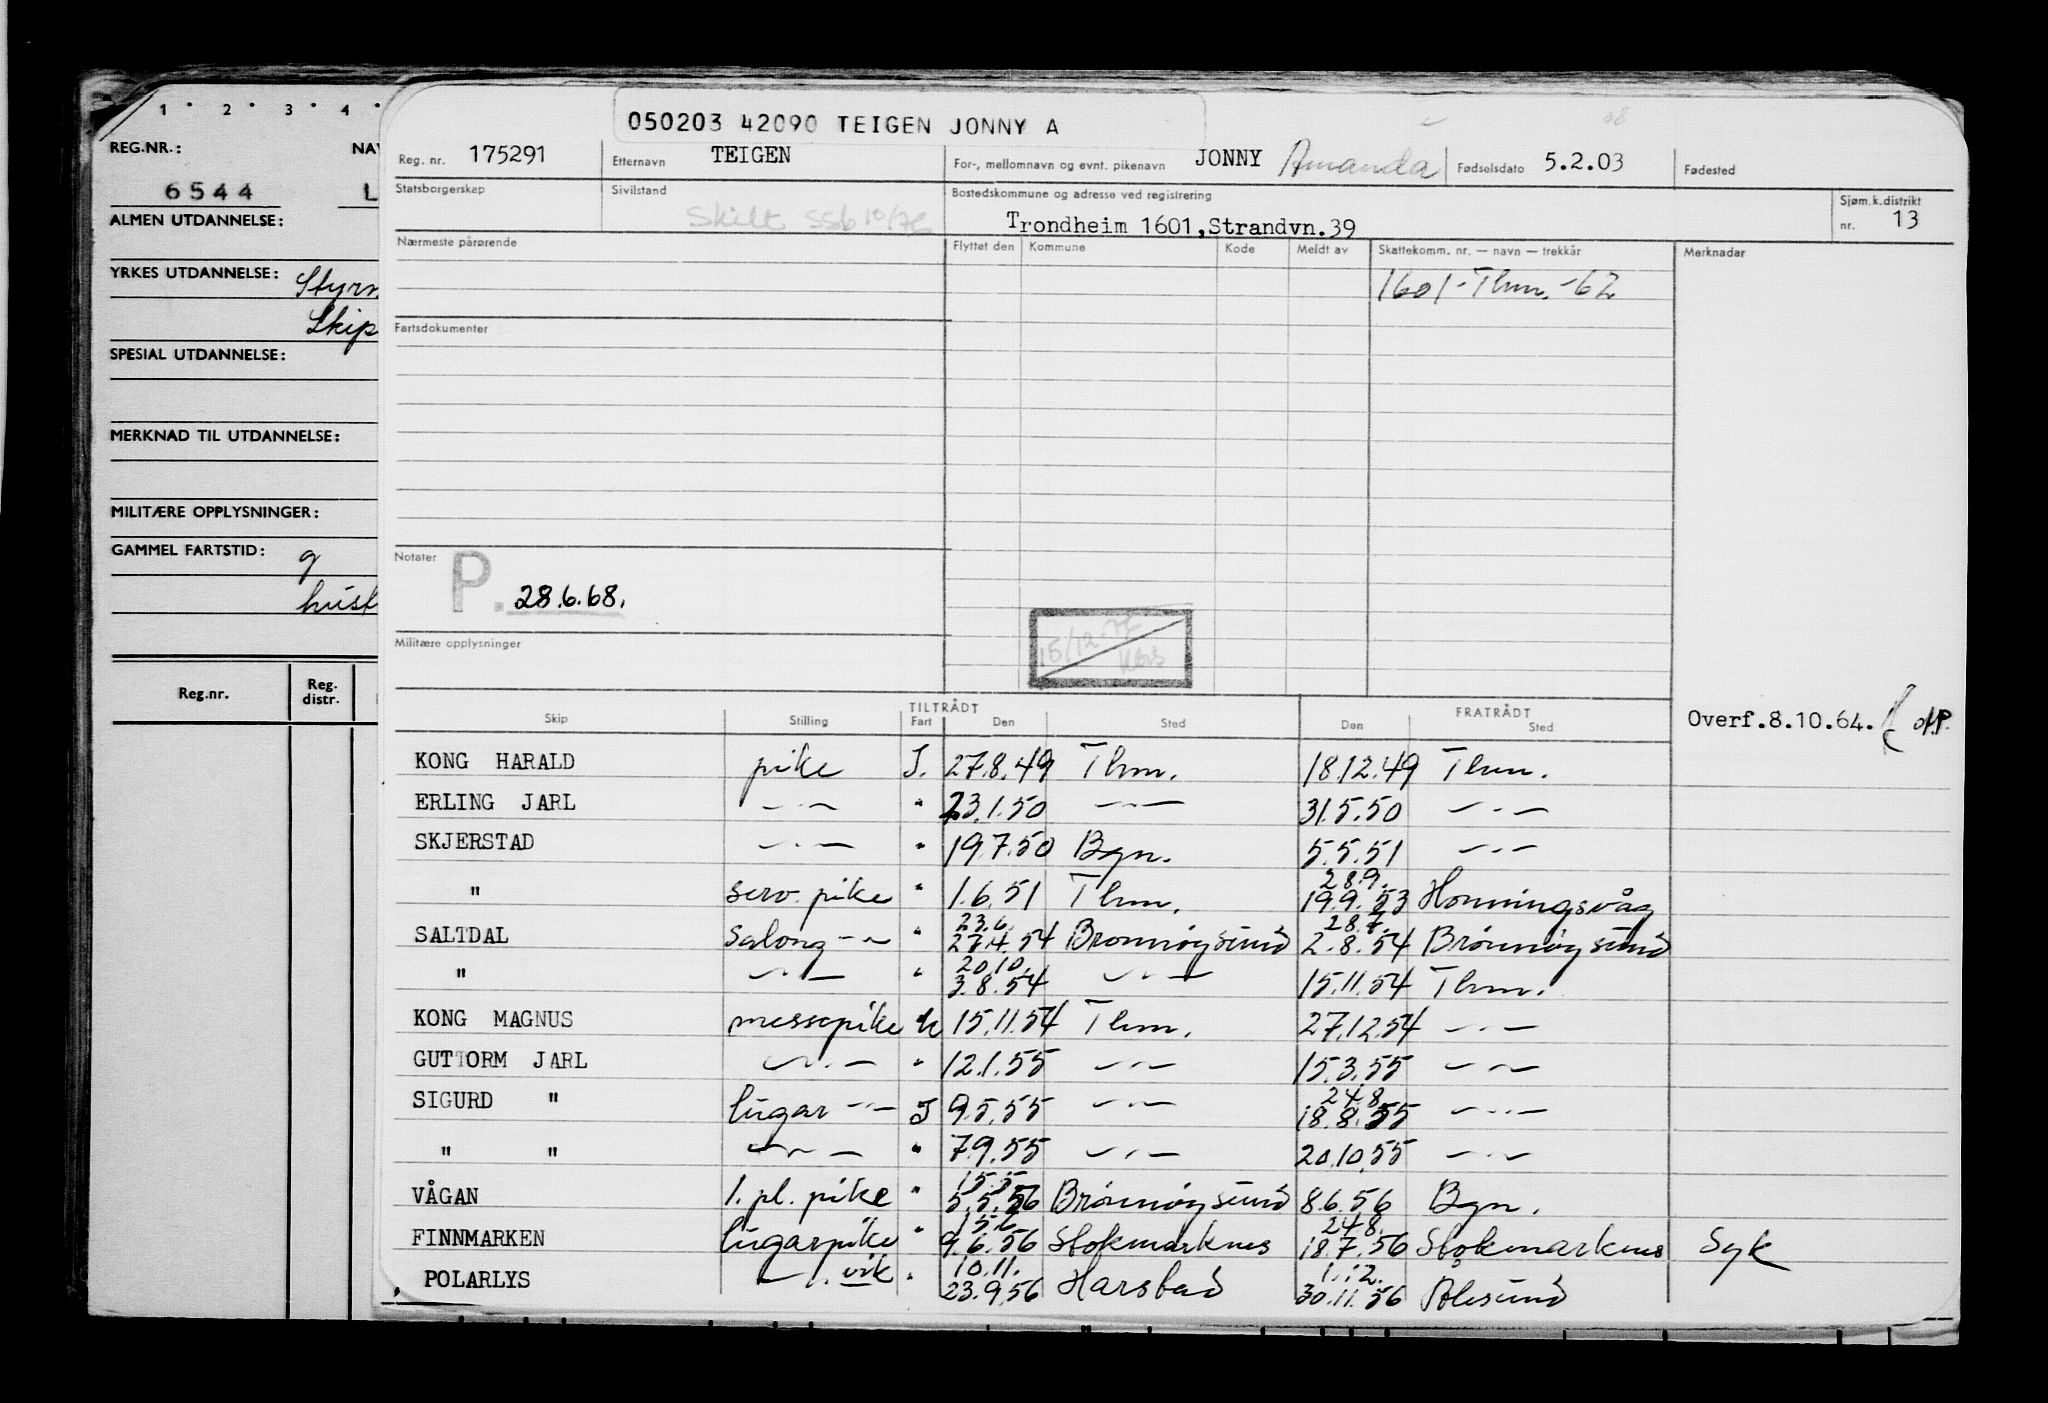 1 · 2 · 3 · 4 ·
REG.NR.: NAV
6544 L
ALMEN UTDANNELSE:
YRKES UTDANNELSE: Styrm
Skip
SPESIAL UTDANNELSE:
MERKNAD TIL UTDANNELSE:
MILITÆRE OPPLYSNINGER:
GAMMEL FARTSTID: 9
hist
Reg.nr. Reg. distr.
050203 42090 TEIGEN JONNY A
Reg. nr. 175291 Etternavn TEIGEN For-, mellomnavn og evnt. pikenavn JONNY Amanda Fødselsdato 5.2.03 Fødested
Statsborgerskap Sivilstand Skilt SSB 10/76 Bostedskommune og adresse ved registrering Trondheim 1601, Strandvn.39 Sjøm.k.distrikt nr. 13
Nærmeste pårørende Flyttet den Kommune Kode Meldt av Skattekomm. nr. — navn — trekkår Merknader
1601-Thm.-62
Fartsdokumenter
Notater P. 28.6.68.
15/12-76
Militære opplysninger
Overf.8.10.64.
TILTRÅDT FRATRÅDT
Skip Stilling Fart Den Sted Den Sted
KONG HARALD pike I. 27.8.49 Thm. 18.12.49 Thm.
ERLING JARL —"— " 23.1.50 —"— 31.5.50 —"—
SKJERSTAD —"— " 19.7.50 Bgn. 5.5.51 —"—
" serv. pike " 1.6.51 Thm. 28.9. 19.9.53 Honningsvåg
SALTDAL Salong —"— " 23.6. 27.4.54 Brønnøysund 28.7. 2.8.54 Brønnøysund
" —"— " 20.10. 3.8.54 —"— 15.11.54 Thm.
KONG MAGNUS messepike K 15.11.54 Thm. 27.12.54 —"—
GUTTORM JARL —"— " 12.1.55 —"— 15.3.55 —"—
SIGURD " lugar —"— I 9.5.55 —"— 24.8. 18.8.55 —"—
" " —"— " 7.9.55 —"— 20.10.55 —"—
VÅGAN 1. pl. pike " 15.5. 5.5.56 Brønnøysund 8.6.56 Bgn.
FINNMARKEN lugarpike " 15.6. 9.6.56 Stokmarknes 24.8. 18.7.56 Stokmarknes Syk
POLARLYS —"— vik " 10.11. 23.9.56 Harstad 1.12. 30.11.56 Ålesund